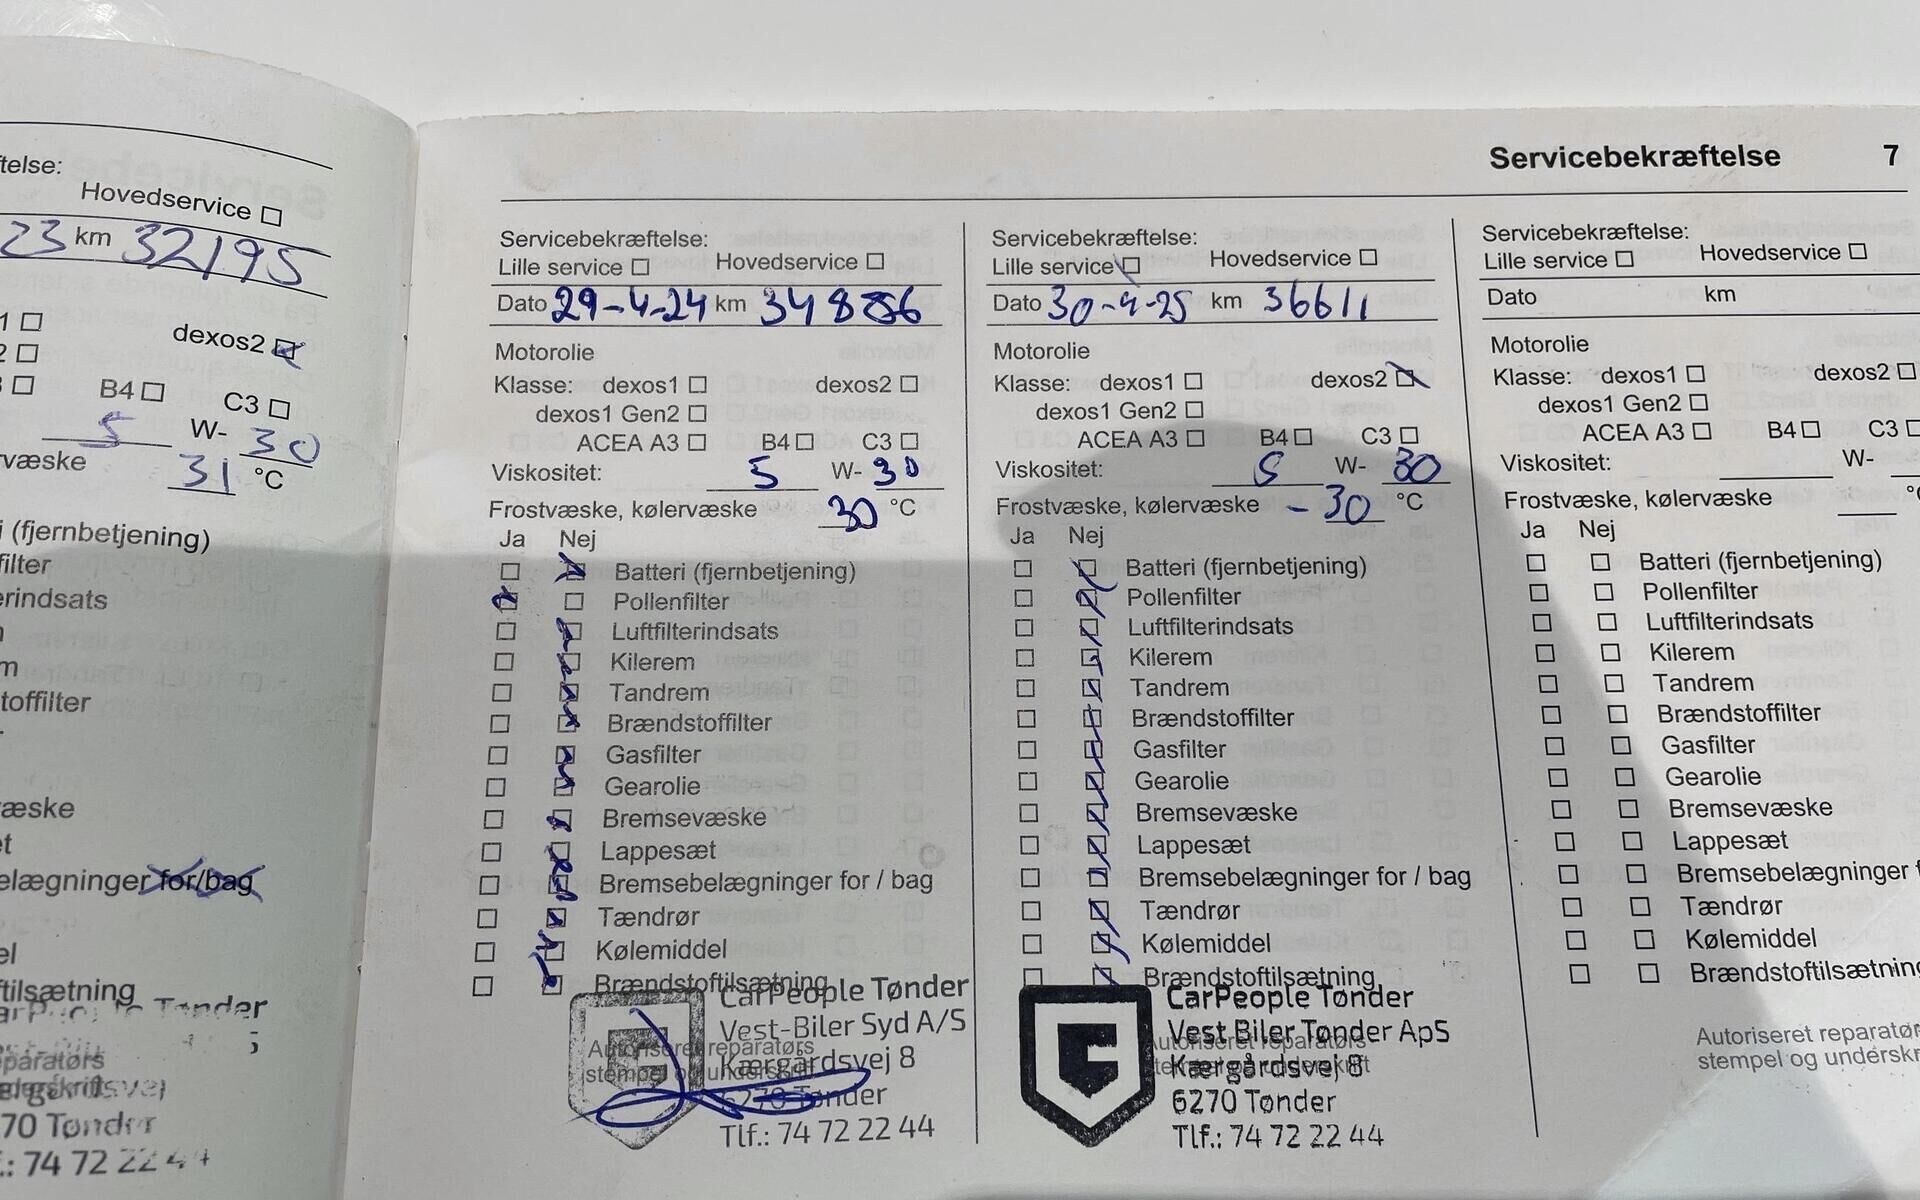 ftelse:
Hovedservice
23 km 32195
1
dexos2
2
B4 C3
5 W- 30
væske 31 °C
i (fjernbetjening)
filter
erindsats
m
toffilter
væske
et
elægninger for/bag
el
tilsætning
Tønder
eparatørs
70 Tønder
.: 74 72 22 44
Servicebekræftelse 7
Servicebekræftelse:
Lille service Hovedservice
Dato 29-4-24 km 34886
Motorolie
Klasse: dexos1 dexos2
dexos1 Gen2
ACEA A3 B4 C3
Viskositet: 5 W- 30
Frostvæske, kølervæske 30 °C
Ja Nej
Batteri (fjernbetjening)
Pollenfilter
Luftfilterindsats
Kilerem
Tandrem
Brændstoffilter
Gasfilter
Gearolie
Bremsevæske
Lappesæt
Bremsebelægninger for / bag
Tændrør
Kølemiddel
Brændstoftilsætning
CarPeople Tønder
Vest-Biler Syd A/S
Autoriseret reparatørs
stempel og underskrift
Kærgårdsvej 8
6270 Tønder
Tlf.: 74 72 22 44
Servicebekræftelse:
Lille service Hovedservice
Dato 30-4-25 km 36611
Motorolie
Klasse: dexos1 dexos2
dexos1 Gen2
ACEA A3 B4 C3
Viskositet: 5 W- 30
Frostvæske, kølervæske -30 °C
Ja Nej
Batteri (fjernbetjening)
Pollenfilter
Luftfilterindsats
Kilerem
Tandrem
Brændstoffilter
Gasfilter
Gearolie
Bremsevæske
Lappesæt
Bremsebelægninger for / bag
Tændrør
Kølemiddel
Brændstoftilsætning
CarPeople Tønder
Vest Biler Tønder ApS
Autoriseret reparatørs
stempel og underskrift
Kærgårdsvej 8
6270 Tønder
Tlf.: 74 72 22 44
Servicebekræftelse:
Lille service Hovedservice
Dato km
Motorolie
Klasse: dexos1 dexos2
dexos1 Gen2
ACEA A3 B4 C3
Viskositet: W-
Frostvæske, kølervæske °C
Ja Nej
Batteri (fjernbetjening)
Pollenfilter
Luftfilterindsats
Kilerem
Tandrem
Brændstoffilter
Gasfilter
Gearolie
Bremsevæske
Lappesæt
Bremsebelægninger f
Tændrør
Kølemiddel
Brændstoftilsætning
Autoriseret reparatør
stempel og underskr